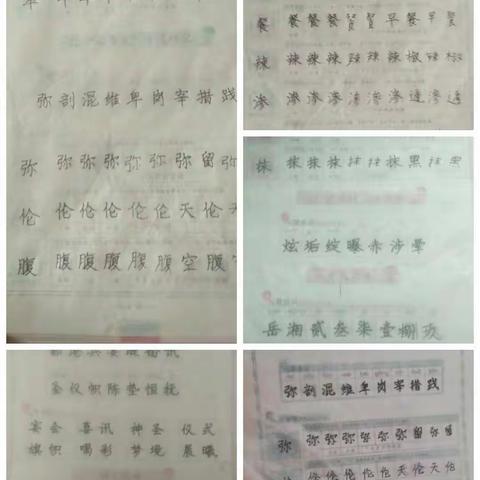 弥剖混维卑岗宰措践
弥 弥弥弥弥弥弥留弥
伦 伦伦伦伦伦天伦天
腹 腹腹腹腹腹空腹空
餐 餐餐餐餐餐早餐早
辣 辣辣辣辣辣辣椒辣椒
渗 渗渗渗渗渗渗透渗透
抹 抹抹抹抹抹抹黑抹黑
炫垢绽曝赤涉晕
岳湘贰叁柒壹捌玖
圣仪帜陈垫恒抚
宴会 喜讯 神圣 仪式
旗帜 喝彩 梦境 晨曦
弥剖混维卑岗宰措践
弥 弥弥弥弥弥弥留弥留
伦伦伦伦伦天伦天伦